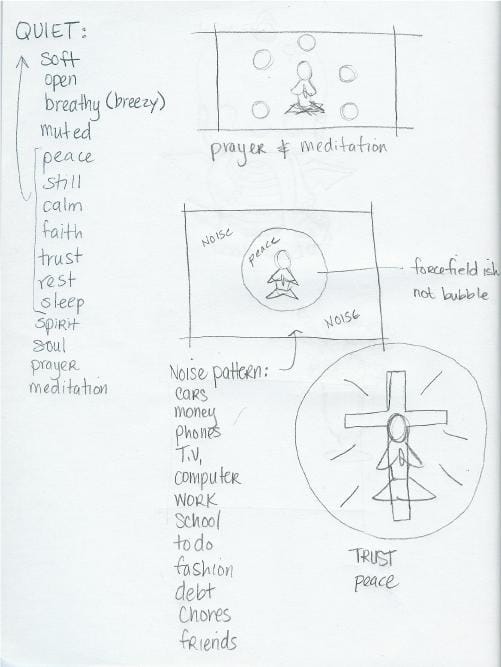 QUIET:
soft
open
breathy (breezy)
muted
peace
still
calm
faith
trust
rest
sleep
spirit
soul
prayer
meditation
prayer & meditation
NOISE
peace
NOISE
forcefield ish
not bubble
Noise pattern:
cars
money
phones
T.V.
computer
WORK
school
to do
fashion
debt
chores
friends
TRUST
peace